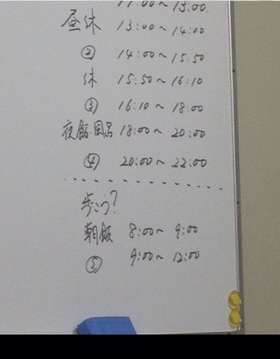 11:00～13:00
昼休 13:00～14:00
② 14:00～15:50
休 15:50～16:10
③ 16:10～18:00
夜飯 18:00～20:00
④ 20:00～22:00
歩こう?
朝飯 8:00～9:00
⑤ 9:00～12:00